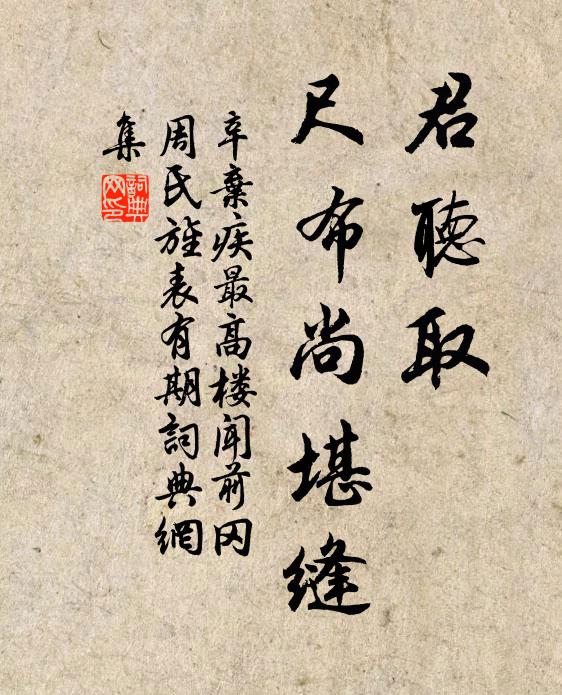 君聽取
尺布尚堪縫
辛棄疾最高楼聞前冈
周氏旌表有期詞典網
集
詞典网印